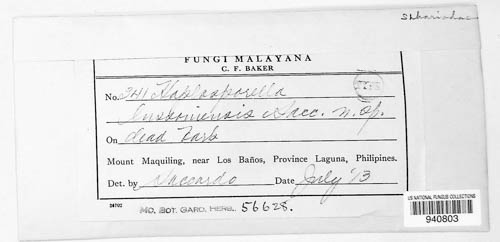 FUNGI MALAYANA
C. F. BAKER
No. 241 Haplosporella
luzonensis Sacc. n. sp.
On dead bark
Mount Maquiling, near Los Baños, Province Laguna, Philipines.
Det. by Saccardo Date July '13
28702
MO. BOT. GARD. HERB. 56628.
US NATIONAL FUNGUS COLLECTIONS
940803